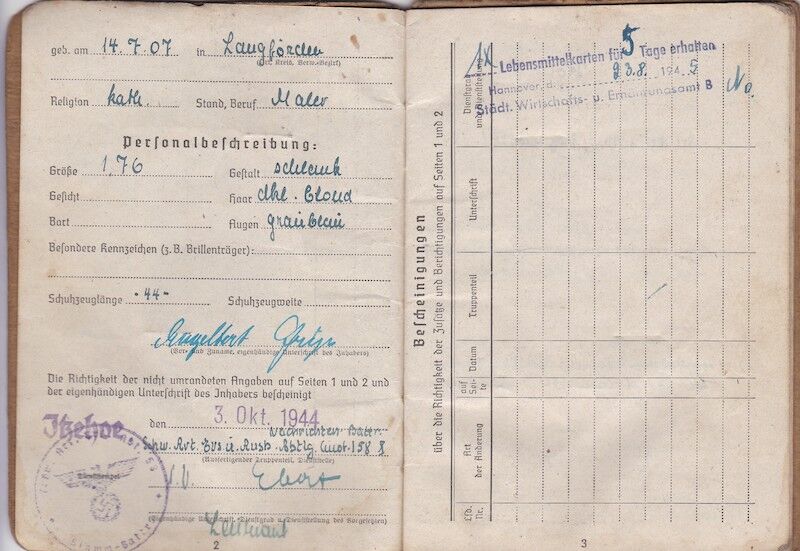 geb. am 14.7.07 in Langförden
(Ort, Kreis, Verw.-Bezirk)
Religion kath. Stand, Beruf Maler
Personalbeschreibung:
Größe 1,76 Gestalt schlank
Gesicht Haar dkl. blond
Bart Augen graublau
Besondere Kennzeichen (z. B. Brillenträger):
Schuhzeuglänge -44- Schuhzeugweite
Engelbert
(Vor- und Zuname, eigenhändige Unterschrift des Inhabers)
Die Richtigkeit der nicht umrandeten Angaben auf Seiten 1 und 2 und
der eigenhändigen Unterschrift des Inhabers bescheinigt
Itzehoe den 3. Okt. 1944
Nachrichten Battr.
Schw. Art. Ers. u. Ausb. Abtlg. (mot) 58
(Ausfertigender Truppenteil, Dienststelle)
Ebert
Dienststempel
(Eigenhändige Unterschrift, Dienstgrad u. Dienststellung des Vorgesetzten)
Leutnant
2
Bescheinigungen
über die Richtigkeit der Zusätze und Berichtigungen auf Seiten 1 und 2
Lfd. Nr.
Art der Änderung
auf Seite
Datum
Truppenteil
Unterschrift
Dienstgrad und Dienststellung
1x Lebensmittelkarten für 5 Tage erhalten
Hannover, d. 23.8. 1945
Städt. Wirtschafts- u. Ernährungsamt B
No.
3